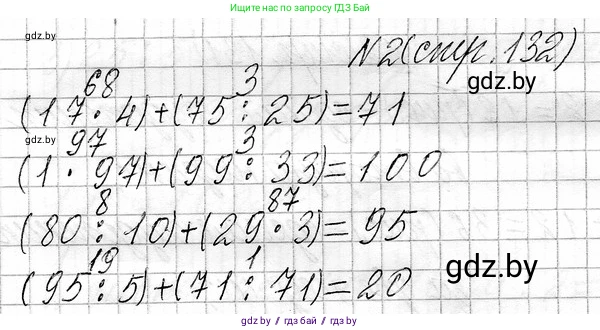 найдено по запросу ГДЗ Бай
gdz.by
N2(стр. 132)
gdz.by
68 3
(17 · 4)+(75 : 25)=71
gdz.by
97 3
(1 · 97)+(99 : 33)=100
8 87
(80 : 10)+(29 · 3)=95
19 1
(95 : 5)+(71 : 71)=20
gdz.by
gdz.by / гдз бай / гдз by